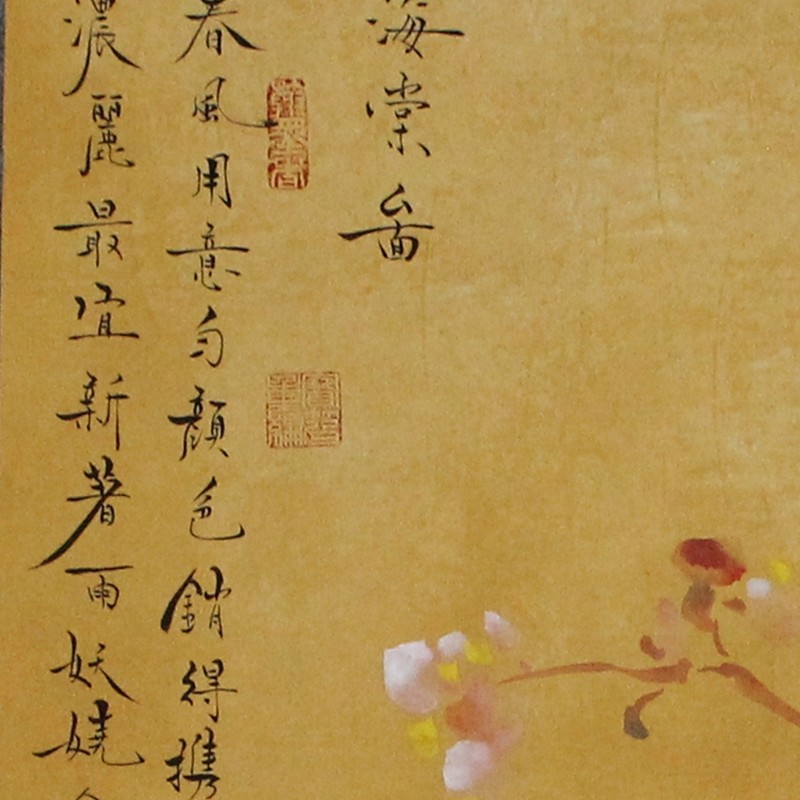 海棠啚
春風用意勻顔色銷得携
濃麗最宜新著雨妖嬈